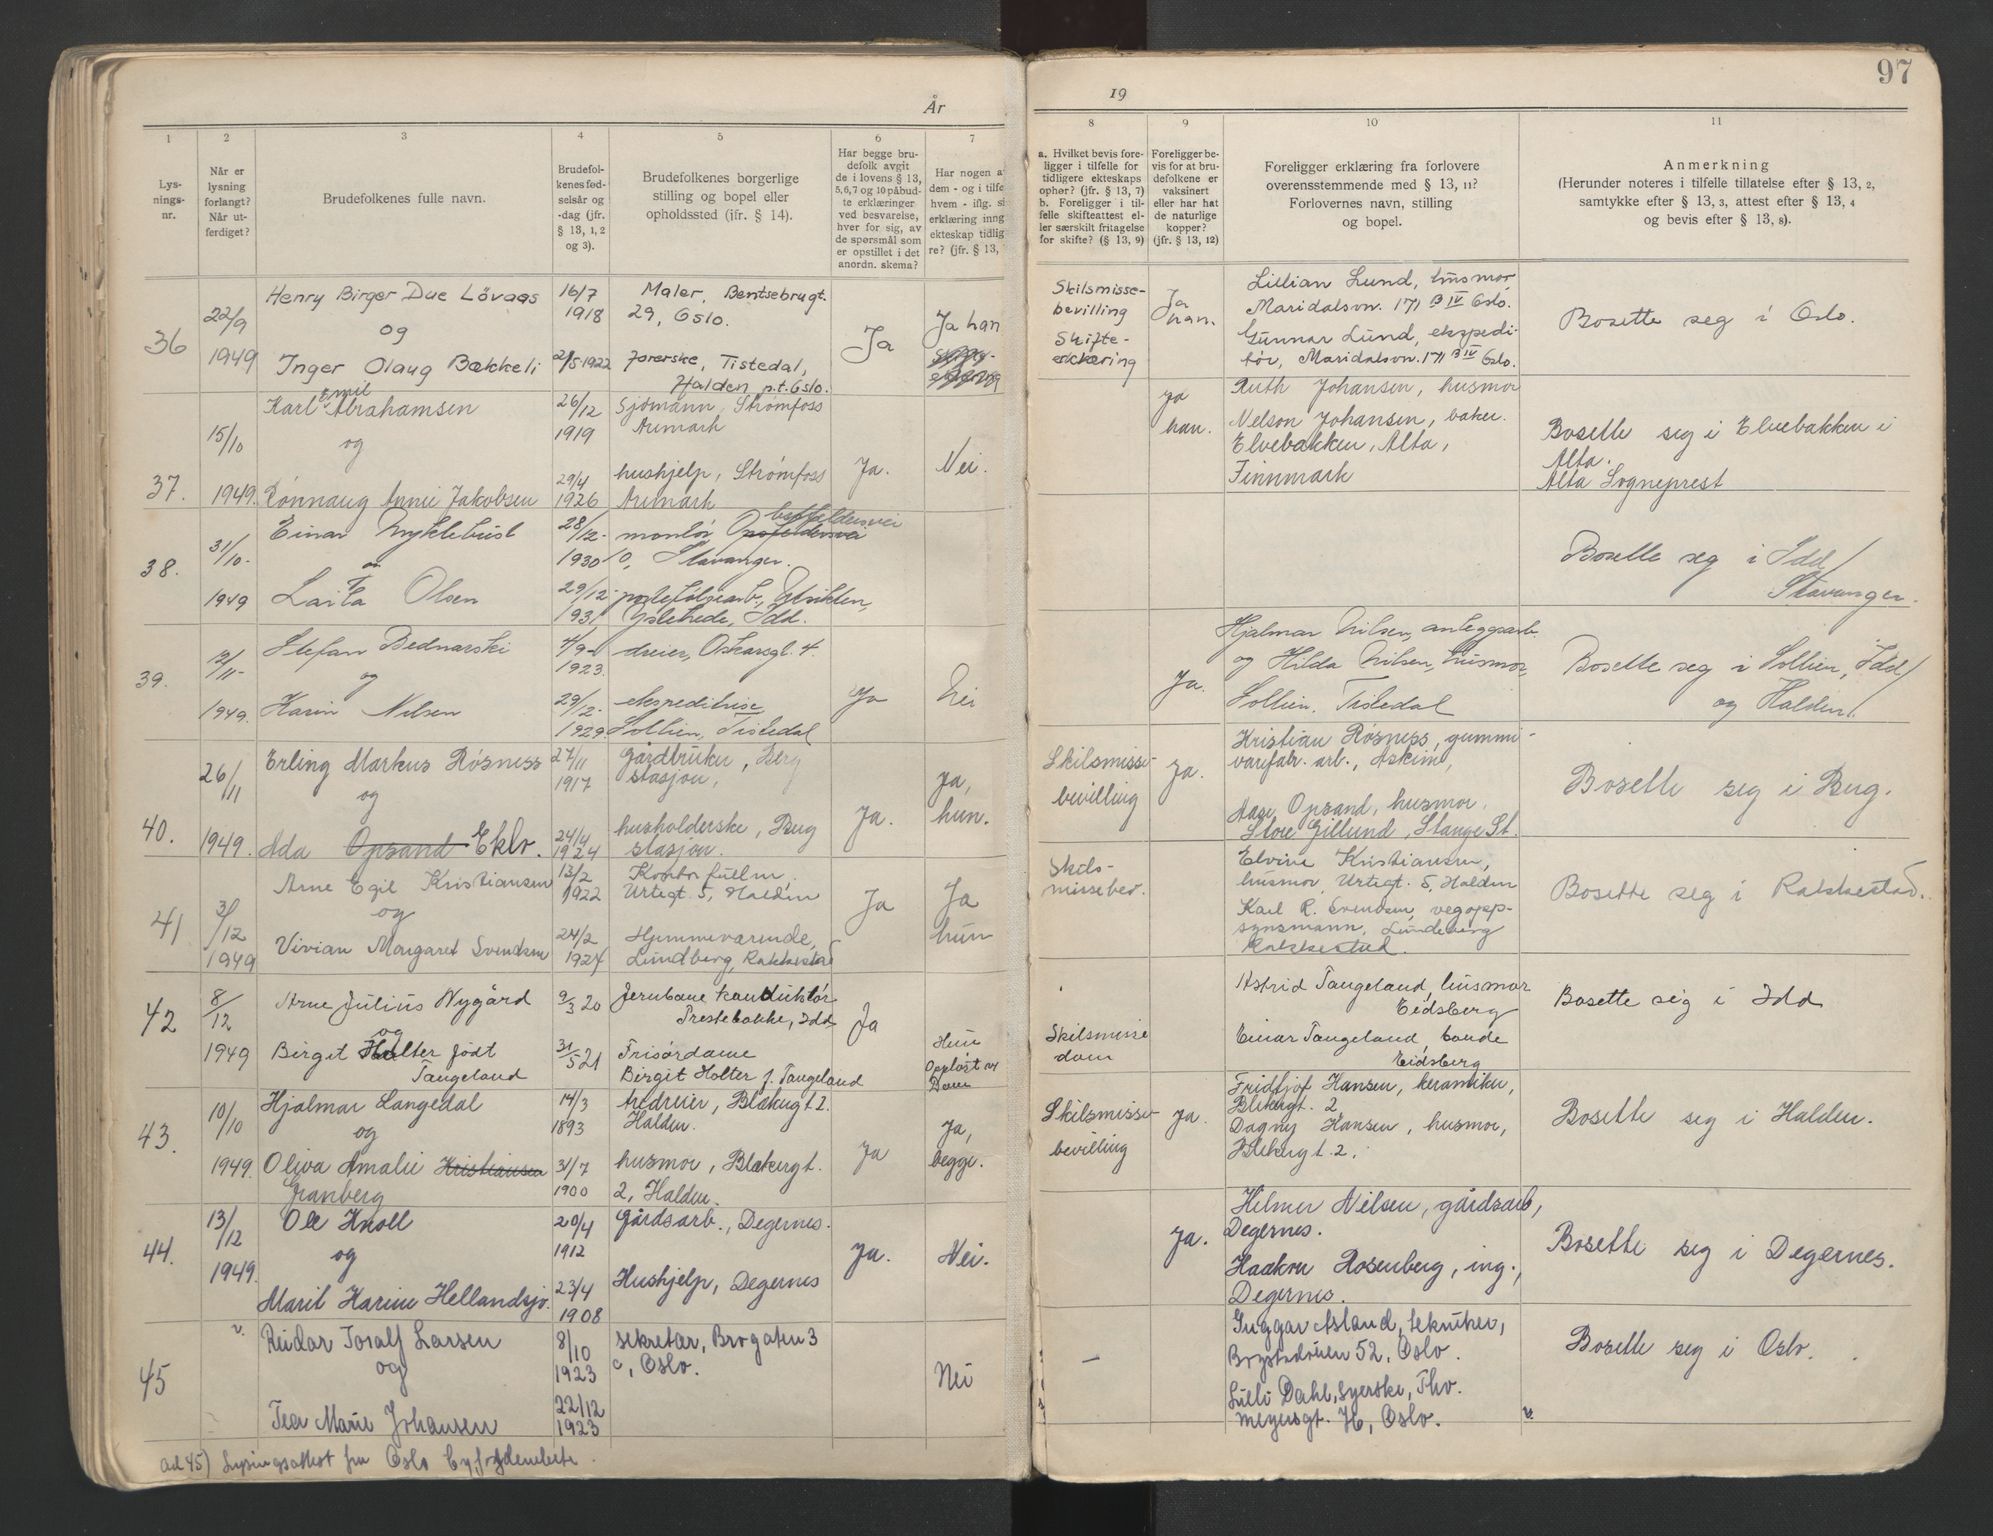 97
År
19
1
2
3
4
5
6
7
8
9
10
11
Lys-
nings-
nr.
Når er
lysning
forlangt?
Når ut-
ferdiget?
Brudefolkenes fulle navn.
Brudefol-
kenes fød-
selsår og
-dag (jfr.
§ 13, 1, 2
og 3).
Brudefolkenes borgerlige
stilling og bopel eller
opholdssted (jfr. § 14).
Har begge bru-
defolk avgit
de i lovens § 13,
5, 6, 7 og 10 påbud-
te erklæringer
ved besvarelse,
hver for sig, av
de spørsmål som
er opstillet i det
anordn. skema?
Har nogen a
dem - og i tilfe
hvem - iflg. si
erklæring inng
ekteskap tidlig
re? (jfr. § 13,
a. Hvilket bevis fore-
ligger i tilfelle for
tidligere ekteskaps
ophør? (jfr. § 13, 7)
b. Foreligger i til-
felle skifteattest el-
ler særskilt fritagelse
for skifte? (§ 13, 9)
Foreligger be-
vis for at bru-
defolkene er
vaksinert
eller har hat
de naturlige
kopper?
(jfr. § 13, 12)
Foreligger erklæring fra forlovere
overensstemmende med § 13, 11?
Forlovernes navn, stilling
og bopel.
Anmerkning
(Herunder noteres i tilfelle tillatelse efter § 13, 2,
samtykke efter § 13, 3, attest efter § 13, 4
og bevis efter § 13, 8).
36
22/9
1949
Henry Birger Due Løvaas
og
Inger Olaug Bækkeli
16/7
1918
2/5 1922
Maler, Bentsebrugt.
29, Oslo.
Tistedal,
Halden p.t. Oslo.
Ja
Ja han
Skilsmisse-
bevilling
Skifte-
erklæring
Ja
han.
Lillian Lund, husmor
Maridalsvn. 171 B IV Oslo.
Gunnar Lund, ekspedi-
tør, Maridalsvn. 171 B IV Oslo.
Bosette seg i Oslo.
37.
15/10
1949.
Karl Emil Abrahamsen
og
Rønnaug Annie Jakobsen
26/12
1919
29/4
1926
Sjømann, Strømfoss
Aremark
hushjelp, Strømfoss
Aremark
Ja.
Nei.
Ja
han.
Ruth Johansen, husmor
Nelson Johansen, baker.
Elvebakken, Alta,
Finnmark
Bosette seg i Elvebakken i
Alta.
Alta Sogneprest
38.
31/10-
1949
Einar Myklebust
og
Laila Olsen
28/12-
1930
29/12-
193
montør
Stavanger.
Idd.
Bosette seg i Idd/
Stavanger.
39.
12/11-
1949.
Stefan Bednarski
og
Karin Nilsen
4/9-
1923.
29/2-
1929.
dreier, Oskarsgt. 4.
ekspeditrise
Sollien, Tistedal
Ja
Nei
Ja.
Hjalmar Nilsen, anleggsarb.
og Hilda Nilsen, husmor,
Sollien. Tistedal
Bosette seg i Sollien, Idd/
og Halden/.
40.
26/11
1949.
Erling Markus Røsness
og
Ada Opsand Eklo.
27/11
1917
24/4
1924
Gårdbruker, Berg
stasjon,
husholderske, Berg
stasjon.
Ja.
Ja,
hun.
Skilsmisse-
bevilling
Ja.
Kristian Røsness, gummi-
varefabr. arb., Askim,
Aase Opsand, husmor.
Store Gillund, Stange St.
Bosette seg i Berg.
41
3/12
1949
Arne Egil Kristiansen
og
Vivian Margaret Svendsen
13/2
1922
24/2
1927
Kontorfullm,
Urtegt. 5, Halden
Hjemmeværende,
Lundberg, Rakkestad
Ja
Ja
hun
Skils-
missebev.
Elvine Kristiansen,
husmor, Urtegt. 5, Halden
Karl R. Svendsen, vegopp-
synsmann, Lundeberg
Rakkestad.
Bosette seg i Rakkestad.
42
8/12
1949
Arne Julius Nygård
og
Birgit Holter født
Tangeland
9/3 20
31/5 21
Jernbane konduktør
Prestebakke, Idd
Frisørdame
Birgit Holter f. Tangeland
Ja
Hun
Oppløst ve
Dom
Skilsmisse
dom
Astrid Tangeland, husmor
Eidsberg
Einar Tangeland, bonde
Eidsberg
Bosette seg i Idd
43.
10/10
1949.
Hjalmar Langedal
og
Oliva Amalie Kristiansen
Granberg
14/3
1893
31/7
1900
tredreier, Blekergt 2.
Halden.
husmor, Blekergt.
2, Halden.
Ja
Ja,
begge.
Skilsmisse-
bevilling
Ja.
Fridtjof Hansen, keramiker,
Blekergt. 2.
Dagny Hansen, husmor,
Blekergt. 2.
Bosette seg i Halden.
44.
13/12
1949.
Ole Knoll
og
Marit Karine Hellandsjo.
20/4
1912
23/4
1908
Gårdsarb., Degernes.
Hushjelp, Degernes
Ja.
Nei.
Ja.
Hilmer Nilsen, gårdsarb,
Degernes.
Haakon Rosenberg, ing.,
Degernes.
Bosette seg i Degernes.
45
v.
Reidar Toralf Larsen
og
Tea Marie Johansen
8/10
1923
22/12
1923
sekretær, Brogaten 3
c, Oslo.
Nei
—
Åsland, tekniker,
52, Oslo.
Lilli Dahl, syerske, Thv.
Meyersgt. Oslo.
v.
Bosette seg i Oslo.
ad 45) Lysningsattest fra Oslo byfogdembete.